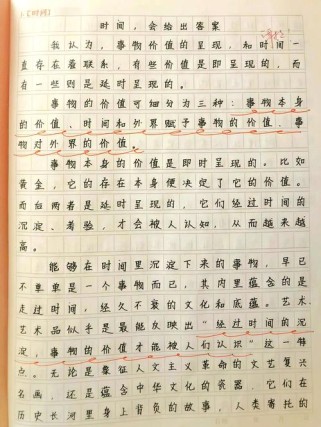 时间，会给出答案
我认为，事物价值的呈现，和时间一
直存在着联系，有些价值是即时呈现的，而
有一些则是延时呈现的。
事物的价值可细分为三种：事物本身
的价值、时间和外界赋予事物的价值、事
物对外界的价值。
事物本身的价值是即时呈现的。比如
黄金，它的存在本身便决定了它的价值。
而后两者是延时呈现的，它们经过时间的
沉淀、考验，才会被人认知，从而越来越
高。
能够在时间里沉淀下来的事物，早已
不单单是一个事物而已，其内里蕴含的是
走过时间，经久不衰的文化和底蕴。艺术、
艺术品似乎是最能反映出“经过时间的沉
淀，事物的价值才能被人们认识”这一特
点。无论是象征人文主义革命的文艺复兴
名画，还是蕴含中华文化的瓷器，它们在
历史长河里身上背负的故事，人类寄托的